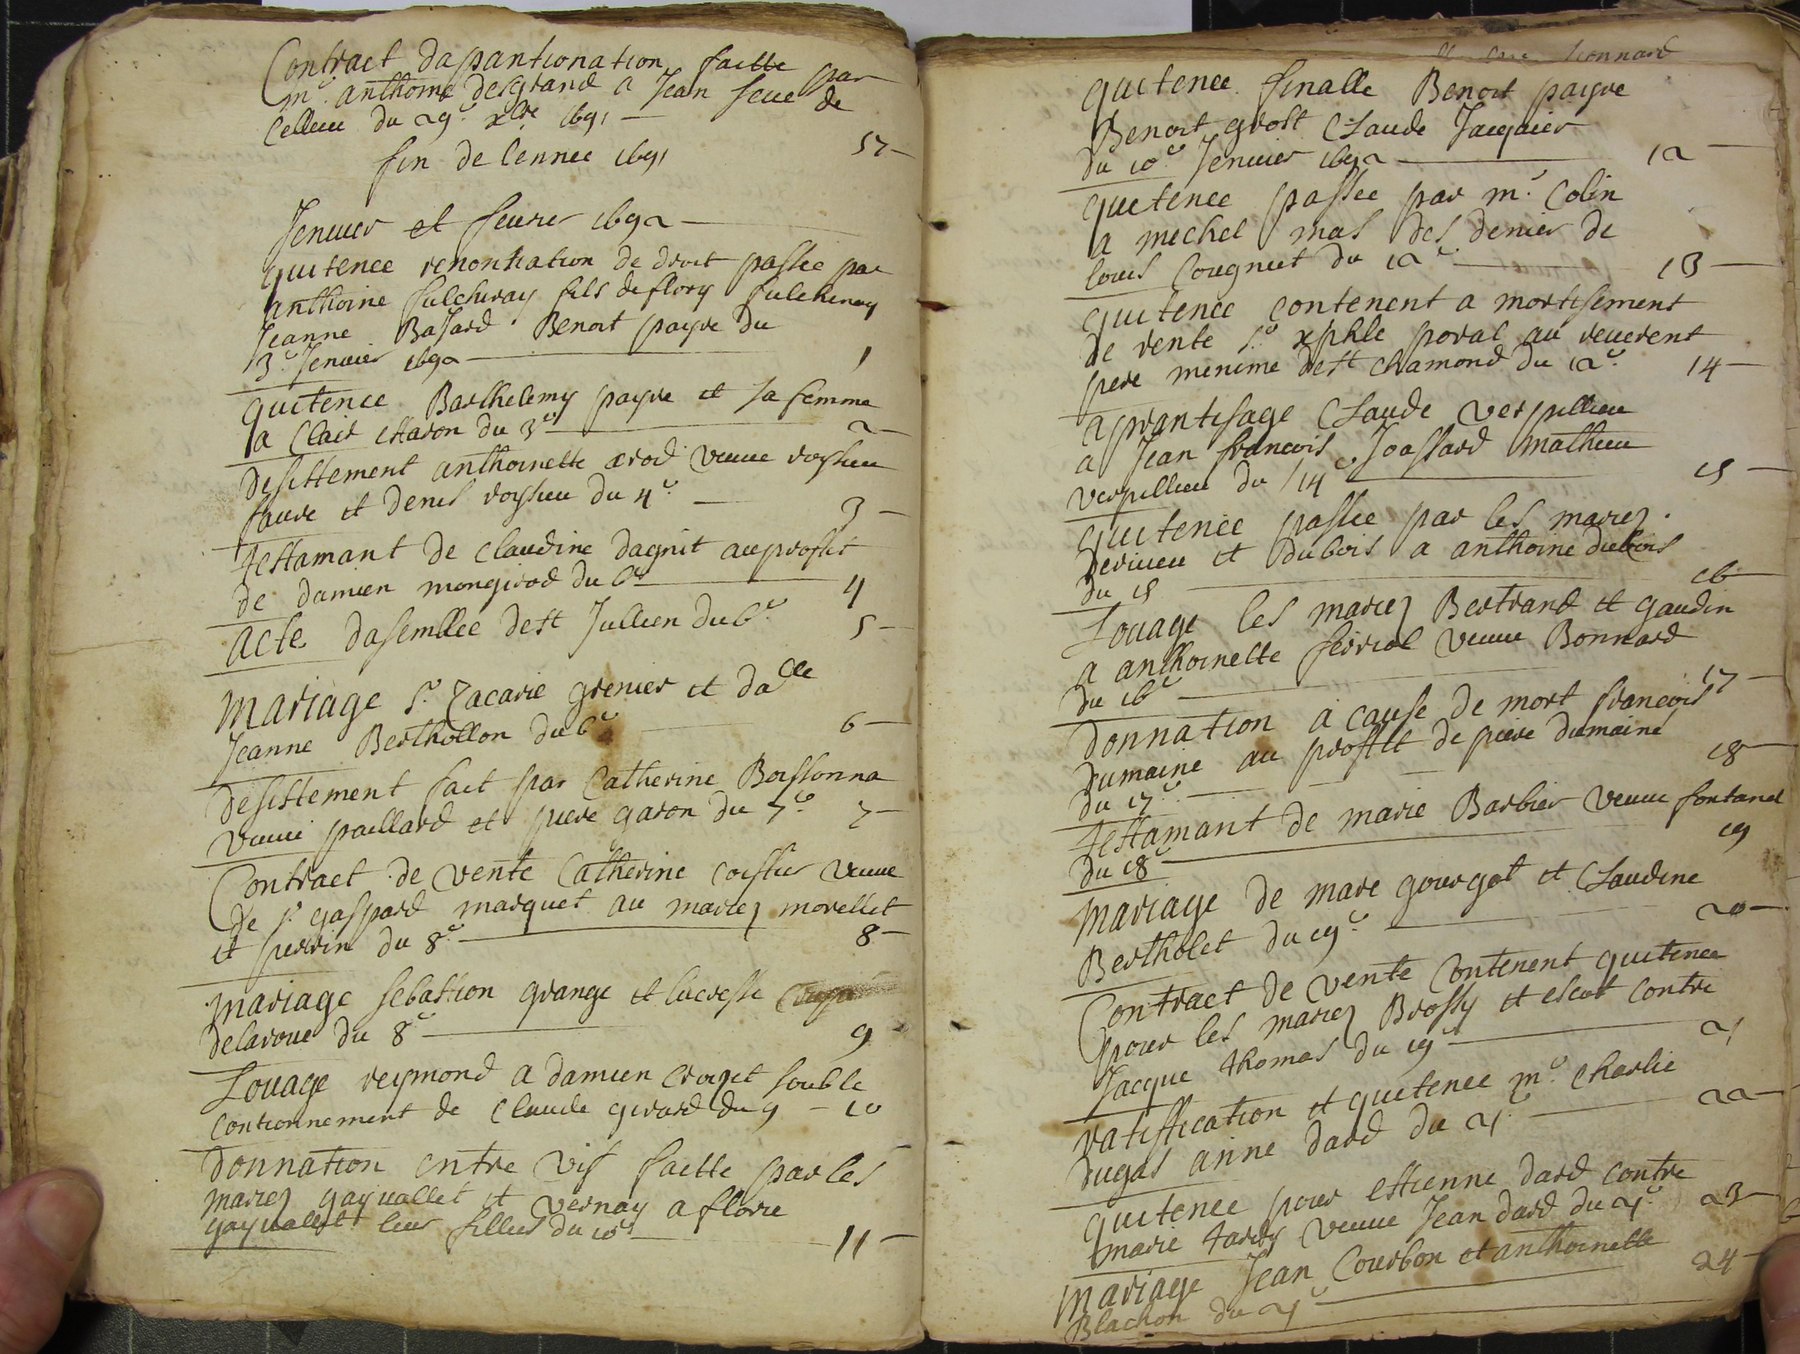 Contract dapantionation faitte par
mr. anthoine desgrand a Jean seue de
Cellieu du 29e xbre 1691
57
fin de lennee 1691
Jenuier et feurier 1692
quitence renontiation de droit passee par
anthoine fulchiray fils de flory fulchiray
Jeanne Bajard Benoit payre du
3e Jenuier 1692
1
quitence Barthelemy payre et sa femme
a Clair charon du 3e
2
desistement anthoinette arod veuue
faure et denis du 4e
3
testamant de claudine dagnit au proffit
de damien mongirod du 6e
4
acte dasemblee de st Jullien du 6e
5
mariage sr. Zacarie grenier et dalle
Jeanne Berthollon du 6e
6
desistement fait par Catherine Boissonna
veuue paillard et piere garon du 7e
7
Contract de vente Catherine coissier veuue
de sr gaspard marquet au mariez morellet
et perrin du 8e
8
mariage sebastion grange et lucresse
delaroue du 8e
9
Louage reymond a damien croizet soub le
contionnement de claude girard du 9
10
donnation entre vif faitte par les
mariez gayuallet et vernay a florie
gayuallet leur fillies du 10e
11
quitence finalle Benoit payre
Benoit grost Claude Jacquier
du 10e Jenuier 1692
12
quitence passee par mr. Colin
a mechel mas des denier de
louis Cougniet du 12e
13
quitence contenent a mortisement
de rente sr xphle poral au reuerent
pere menime de st chamond du 12e
14
aprantisage Claude verpillieu
a Jean francois Joassard mathieu
verpillieu du 14e
15
quitence passee par les mariez
derieu et dubois a anthoine dubois
du 15
16
Louage les mariez Bertrand et gaudin
a anthoinette ferriol veuue Bonnard
du 16e
17
donnation a cause de mort francois
dumaine au proffit de piere dumaine
du 17e
18
testamant de marie Barbier veuue fontanel
du 18e
19
mariage de marc gourgot et Claudine
Bertholet du 19e
20
Contract de vente Contenent quitence
pour les mariez Brossy et escot contre
Jacque thomas du 19e
21
ratiffication et quitence mr. charlie
dugas anne dard du 21e
22
quitence pour estienne dard contre
marie tardy veuue Jean dard du 21e
23
mariage Jean Courbon et anthoinette
Blachon du 21e
24